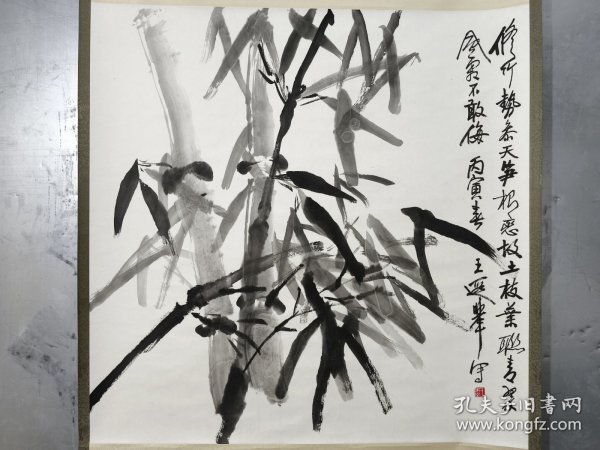 脩竹勢参天笋根恋故土枝葉聯青翠
風雪不敢侮 丙寅春 王遐舉写
孔夫子旧书网
www.kongfz.com